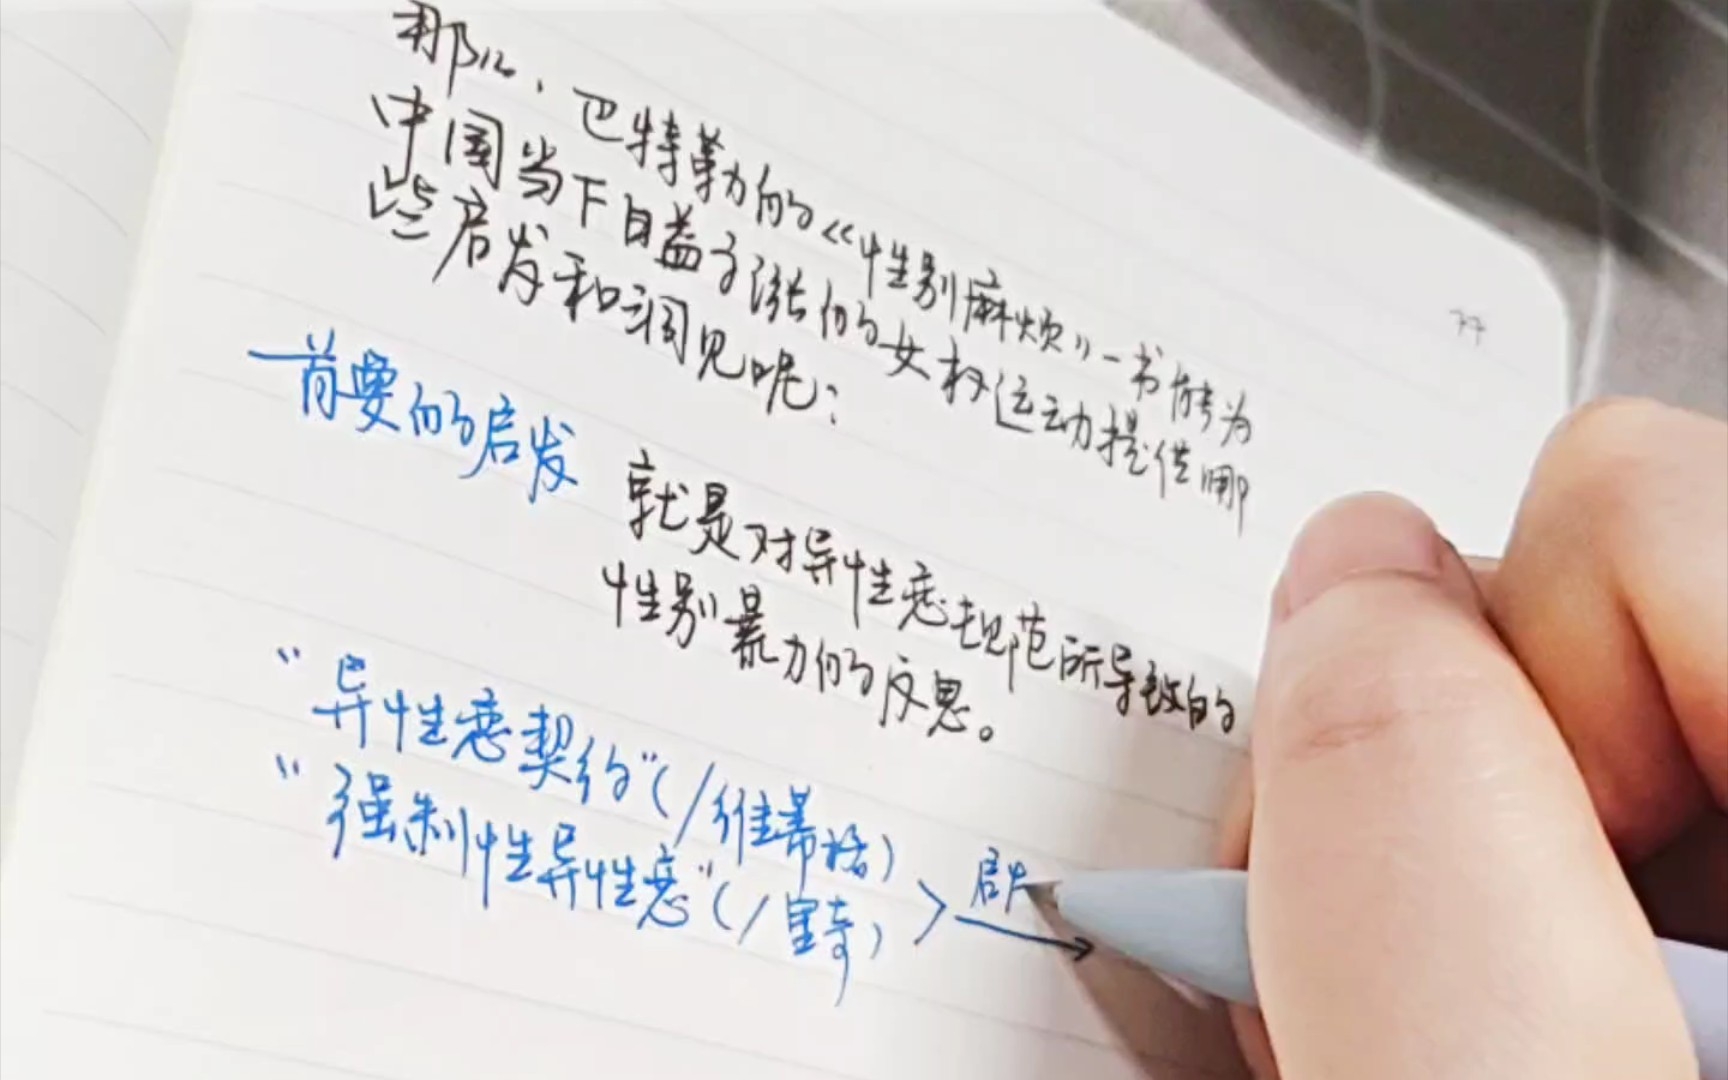 那么，巴特勒的《性别麻烦》一书能为
中国当下日益高涨的女权运动提供哪
些启发和洞见呢：
首要的启发
就是对异性恋规范所导致的
性别暴力的反思。
"异性恋契约"(/维蒂格)
"强制性异性恋"(/里奇)
启
77